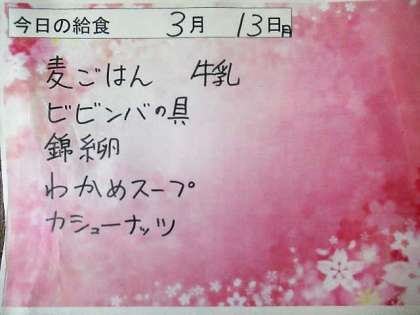 今日の給食 3月 13日月
麦ごはん 牛乳
ビビンバの具
錦糸卵
わかめスープ
カシューナッツ